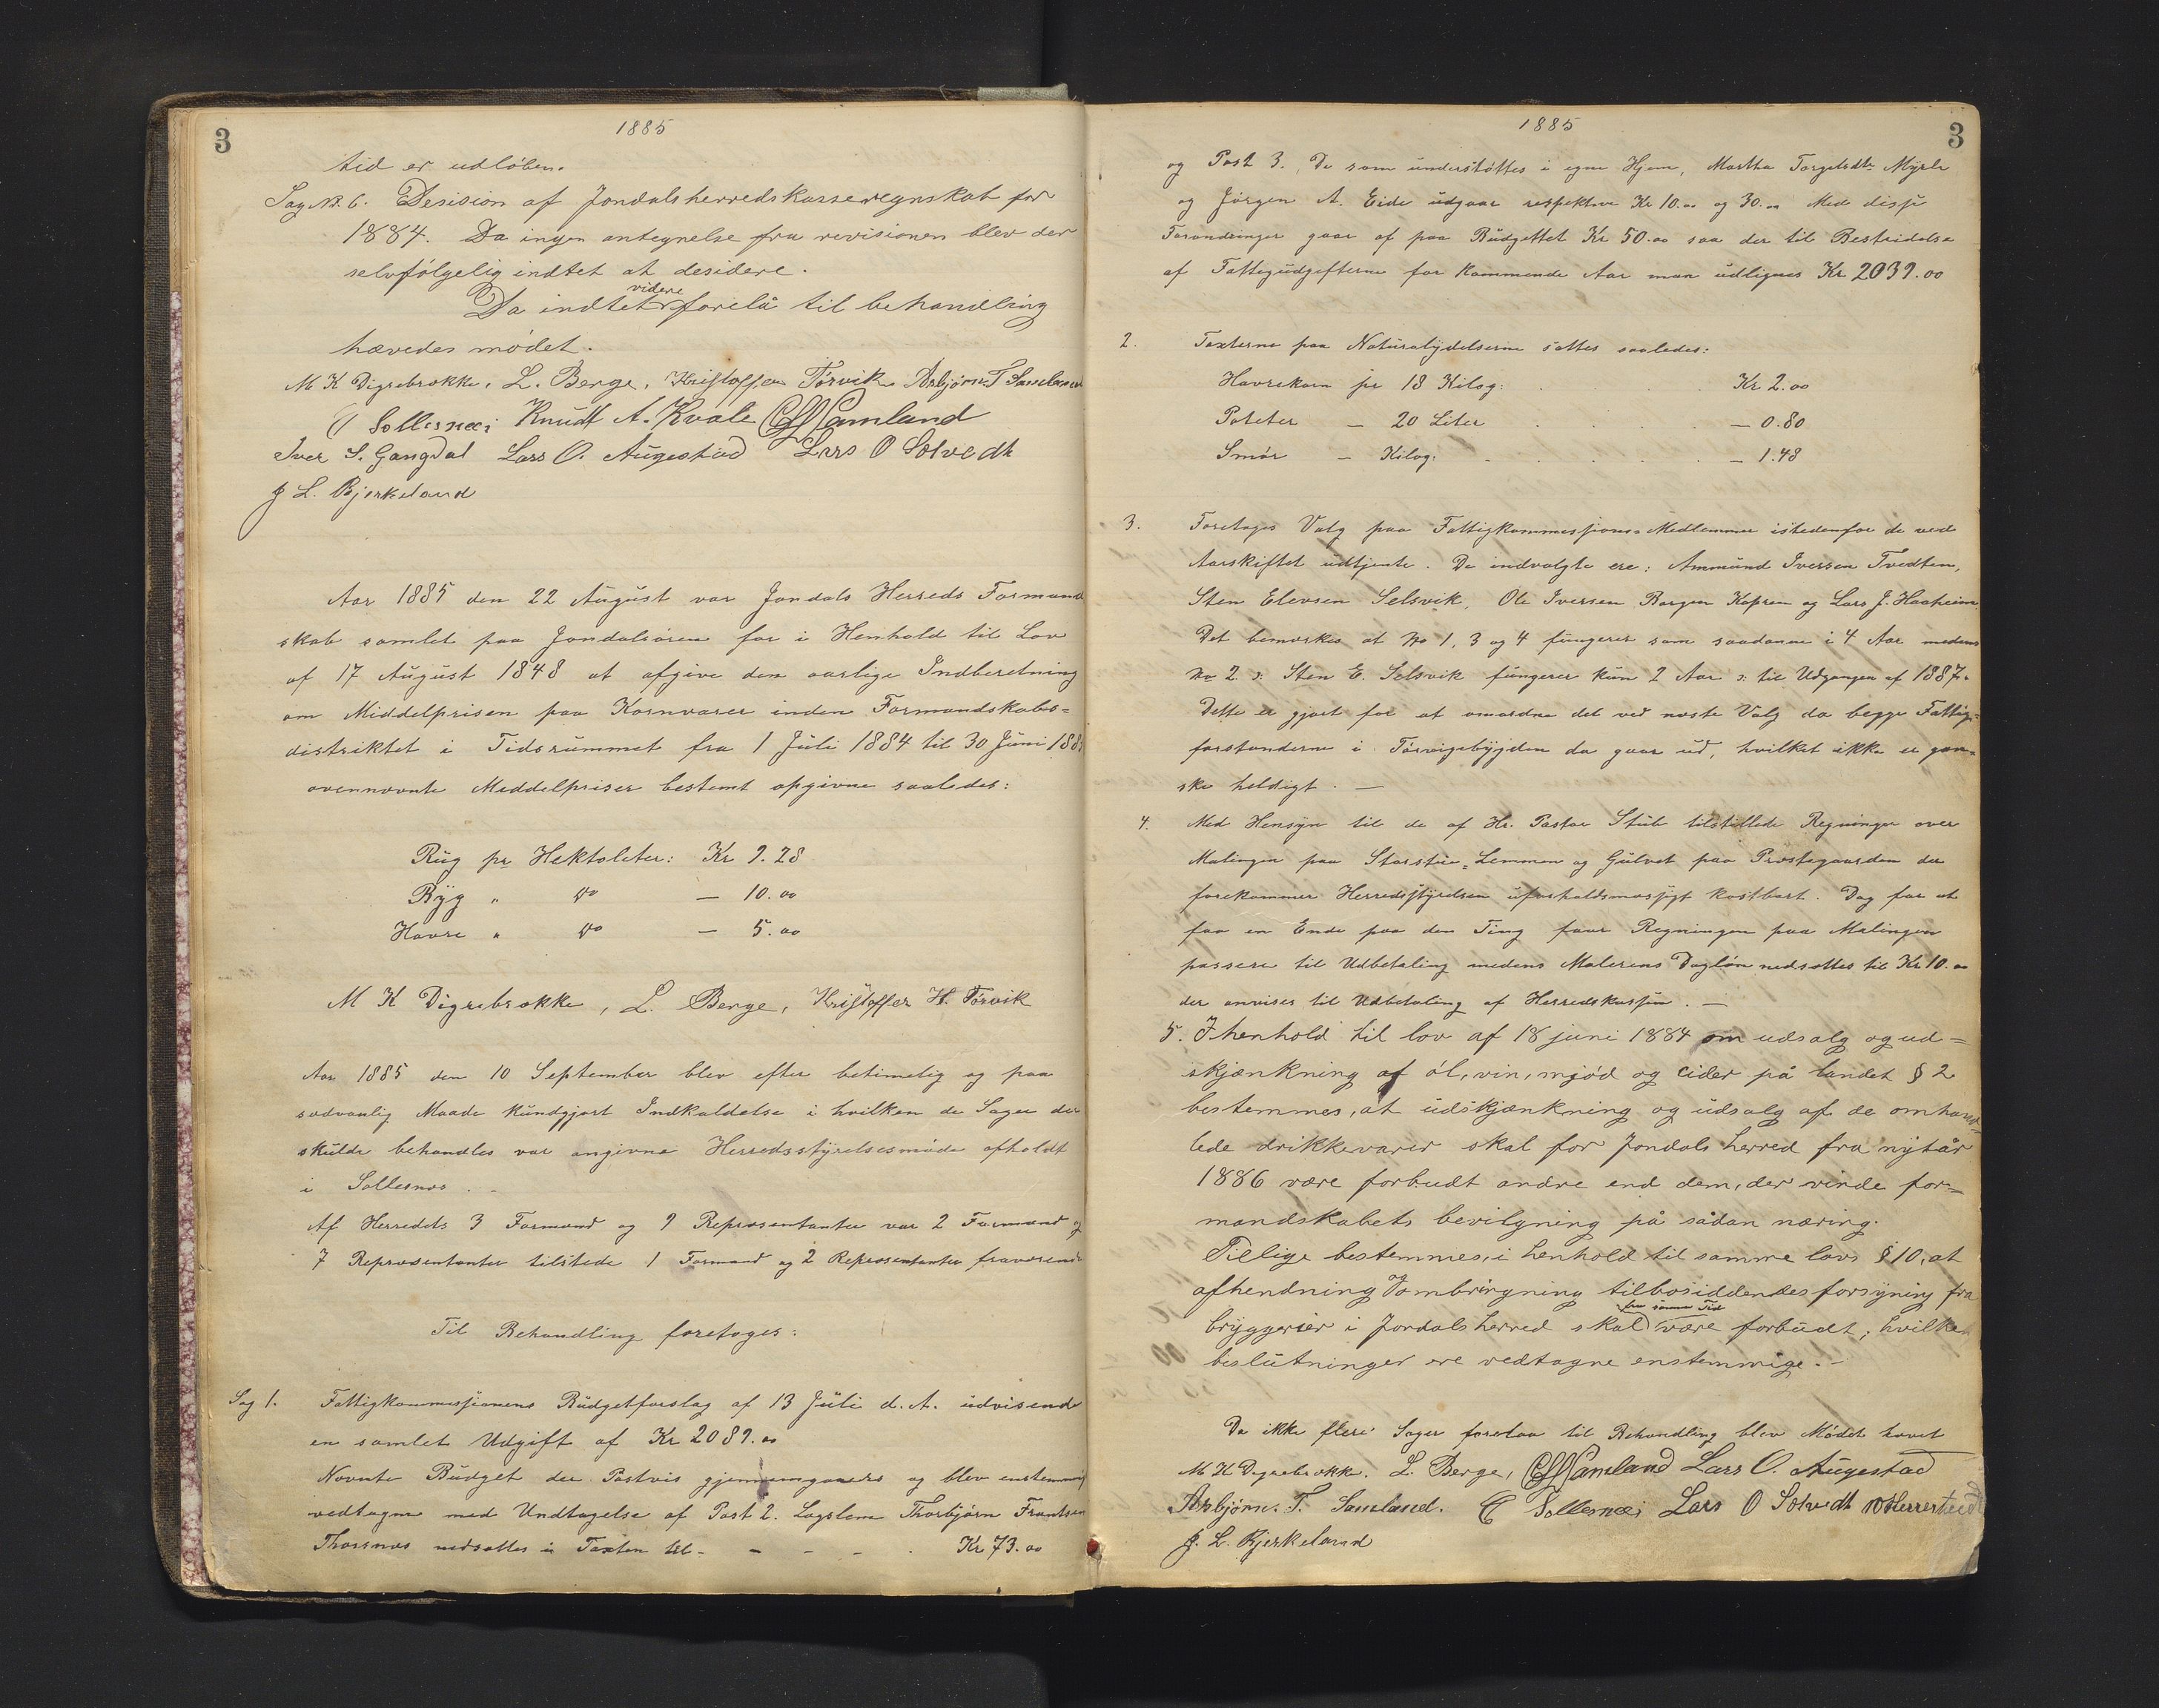 3
1885
tid er udløben.
Sag N. 6. Desision af Jondalsherredskasseregnskab for
1884. Da ingen antegnelse fra revisionen blev der
selvfølgelig indtet at desidere.
Da indtet videre forelå til behandling
hævedes mødet.
M K Digrebrække, L. Berge, Kristoffer Tørvik Asbjørn T Samland
Sollesnes Knudt A. Kvale Samland
Iver S. Gangdal Lars O. Augestad Lars O Solvedt
J L. Bjerkeland
Aar 1885 den 22 August var Jondals Herreds Formand
skab samlet paa Jondalsøren for i Henhold til Lov
af 17 August 1848 at afgive den aarlige Indberetning
om Middelprisen paa Kornvarer inden Formandskabs=
distriktet i Tidsrummet fra 1 Juli 1884 til 30 Juni 188
ovennævnte Meddelpriser bestemt opgivne saaledes:
Rug pr Hektoleter: Kr 9.28
Byg " do — 10.00
Havre " do — 5.00
M K Digrebrække, L. Berge, Kristoffer H. Tørvik
Aar 1885 den 10 September blev efter betimelig og paa
sædvanlig Maade kundgjort Indkaldelse i hvilken de Sager der
skulde behandles var angivne Herredsstyrelsesmøde afholdt
i Sollesnæs. -
Af Herredets 3 Formænd og 9 Repræsentanter var 2 Formænd og
7 Repræsentanter tilstede 1 Formand og 2 Repræsentanter fraværende
Til Behandling foretages:
Sag 1. Fattigkommissjonens Budgetforslag af 13 Juli d. A. udvisende
en samlet Udgift af Kr 2089.00
Nævnte Budget der Postvis gjennemgaaedes og blev enstemmig
vedtagne med Undtagelse af Post 2. Lægslem Thorbjørn Frantsen
Thorsnæs nedsættes i Taxten til - - - - . Kr 73.00
1885
3
og Post 3. De som understøttes i egne Hjem, Martha Torgelsdtr Myrle
og Jørgen A. Eide udgaar respektive Kr 10.00 og 30.00 Med disse
Forandringer gaar af paa Budgettet Kr 50.00 saa der til Bestridelse
af Fattigudgifterne for kommende Aar maa udlignes Kr 2039.00
2. Taxterne paa Naturalydelserne sættes saaledes:
Havrekorn pr 18 Kilog: . . . Kr 2.00
Poteter — 20 Liter . . . — 0.80
Smør — Kilog: . . . . — 1.48
3. Foretages Valg paa Fattigkommessjons=Medlemmer istedenfor de ved
Aarskiftet udtjente. De indvalgte ere: Ammund Iversen Tvedten,
Sten Elevsen Selsvik, Ole Iversen Bargen Kopren og Lars J. Haaheim.
Det bemærkes at No 1, 3 og 4 fungerer som saadanne i 4 Aar medens
No 2 ɔ: Sten E. Selsvik fungerer kun 2 Aar ɔ: til Udgangen af 1887.
Dette er gjort for at omordne det ved næste Valg da begge Fattig=
forstanderne i Tørvigebygden da gaar ud, hvilket ikke er gan=
ske heldigt. —
4. Med Hensyn til de af Hr. Pastor Stub tilstillede Regninger over
Malingen paa Storstue=Lemmen og Gulvet paa Præstegaarden der
forekommer Herredsstyrelsen uforholdsmæssigt kostbart. Dog for at
faa en Ende paa den Ting faar Regningen paa Malingen
passere til Udbetaling medens Malerens Dagløn nedsættes til Kr 10.00
der anvises til Udbetaling af Herredskassen. —
5. I henhold til lov af 18 juni 1884 om udsalg og ud=
skjænkning af øl, vin, mjød og cider på landet § 2
bestemmes, at udskjænkning og udsalg af de omhand=
lede drikkevarer skal for Jondals herred fra nytår
1886 være forbudt andre end dem, der vinde for=
mandskabets bevilgning på sådan næring.
Tillige bestemmes, i henhold til samme lovs § 10, at
afhendning og ombringning til bosiddendes forsyning fra
bryggerier i Jondals herred skal fra samme Tid være forbudt; hvilke
beslutninger ere vedtagne enstemmige. -
Da ikke flere Sager forelaa til Behandling blev Mødet hævet
M K Digrebrække. L. Berge, Samland Lars O. Augestad
Asbjørn. T. Samland. Sollesnes Lars O Solvedt Herrestvedt
J. L. Bjerkeland